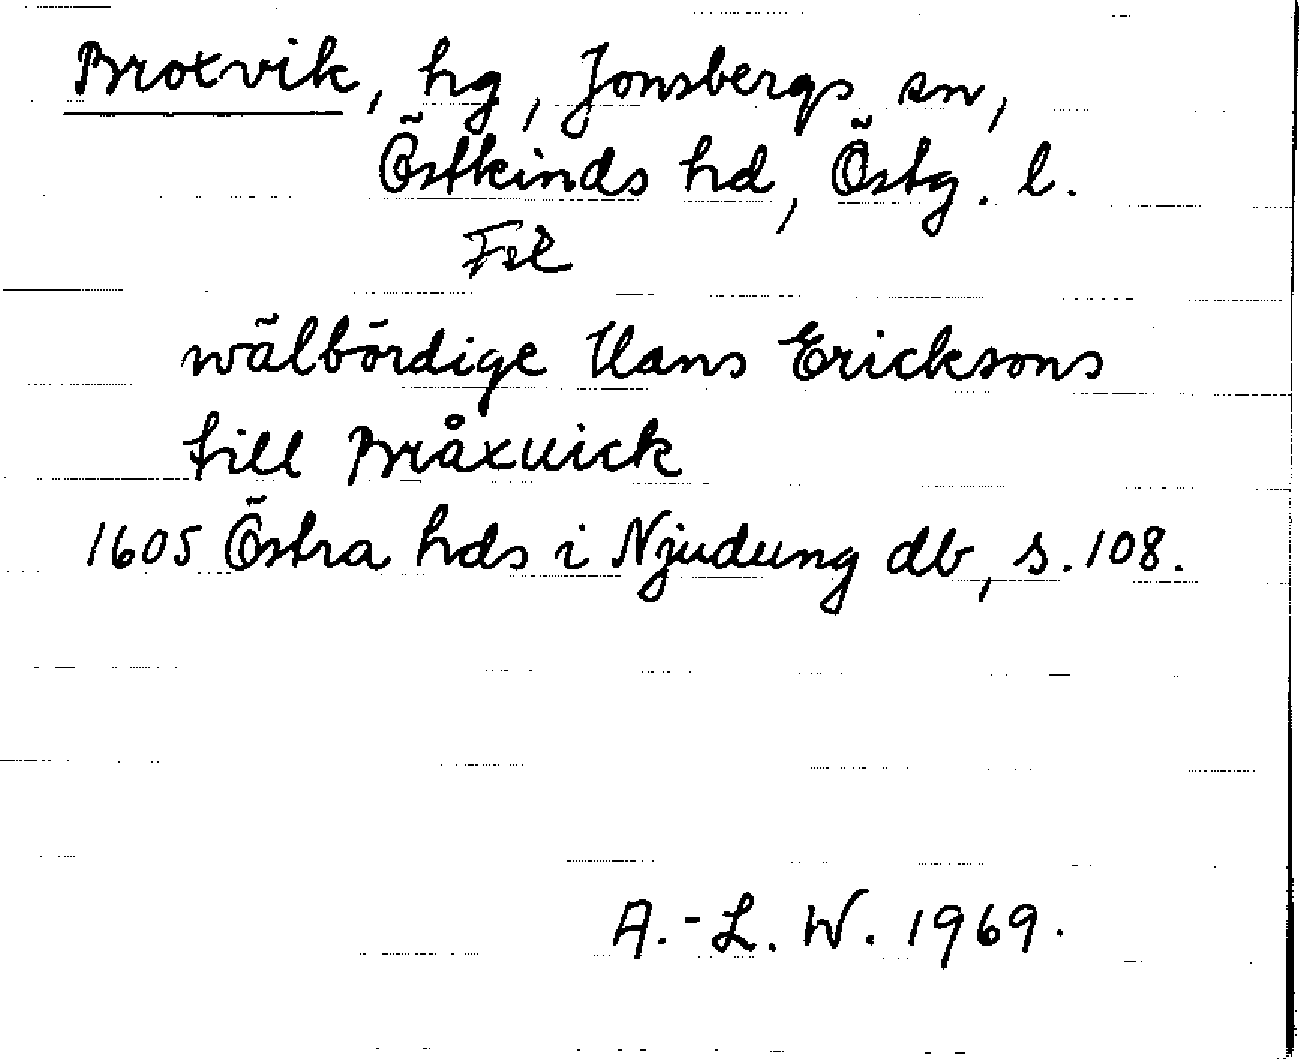 Broxvik, hg, Jonsbergs sn,
Östkinds hd, Östg. l.
wälbördige Hans Ericksons
till Bråxuick
1605 Östra hds i Njudung db, s. 108.
A.-L. W. 1969.